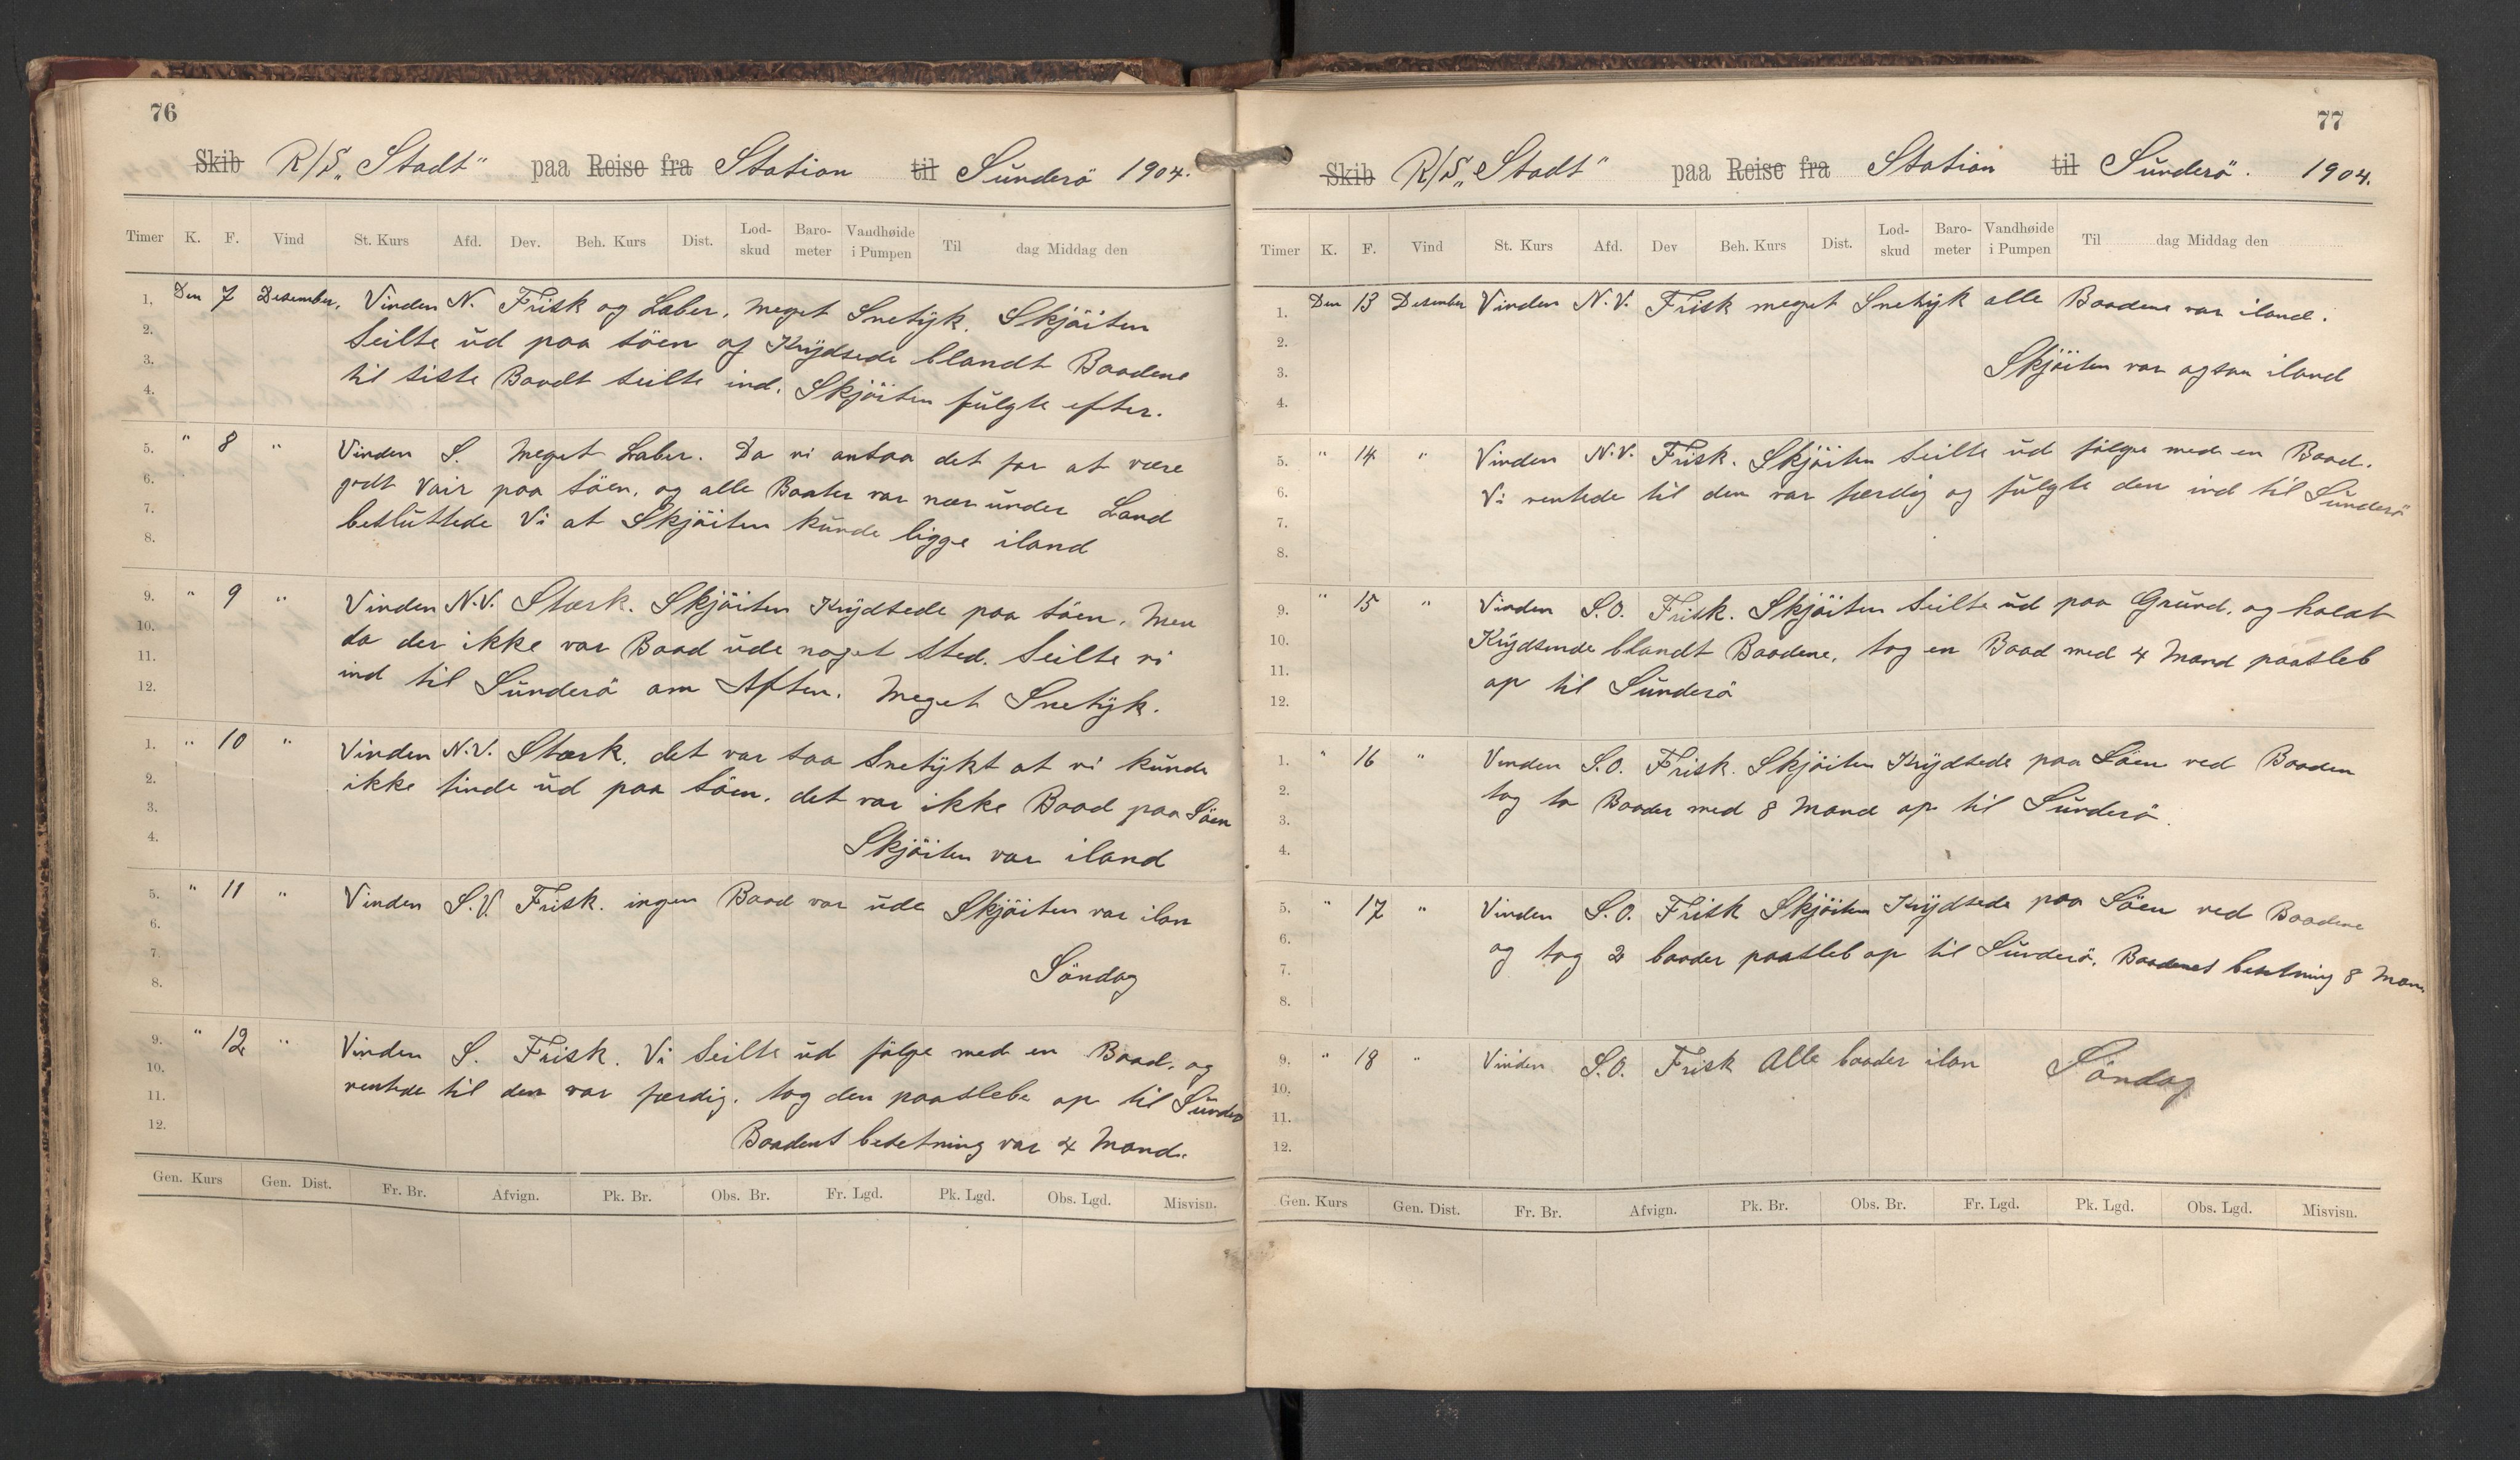 76
Skib R/S „Stadt" paa Reise fra Station til Sunderö 1904.
Timer K. F. Vind St. Kurs Afd. Dev. Beh. Kurs Dist. Lod-skud Baro-meter Vandhøide i Pumpen Til dag Middag den
1. Den 7 Desember, Vinden N. Frisk og Laber, meget Snetÿk. Skjöiten
2. Seilte ud paa söen og Krÿdsede blandt Baadene
3. til siste Baadt seilte ind. Skjöiten fulgte efter.
4.
5. " 8 " Vinden S. Meget Laber. Da vi antaa det for at være
6. godt Vair paa söen, og alle Baater var nær under Land
7. besluttede Vi at Skjöiten kunde ligge iland
8.
9. " 9 " Vinden N.V. Stærk. Skjöiten Krÿdsede paa söen. Men
10. da der ikke var Baad ude noget sted. Seilte vi
11. ind til Sunderö om Aften. Meget Snetÿk.
12.
1. " 10 " Vinden N.V. Stærk. det var saa Snetÿkt at vi kunde
2. ikke finde ud paa söen. det var ikke Baad paa Söen
3. Skjöiten var iland
4.
5. " 11 " Vinden S.V. Frisk. ingen Baad var ude Skjöiten var ilan
6.
7. Söndag
8.
9. " 12 " Vinden S. Frisk. Vi Seilte ud fölge med en Baad. og
10. ventede til den var færdig. tog den paaslebe op til Sunder
11. Baadens besetning var 4 Mand.
12.
Gen. Kurs Gen. Dist. Fr. Br. Afvign. Pk. Br. Obs. Br. Fr. Lgd. Pk. Lgd. Obs. Lgd. Misvisn.
77
Skib R/S „Stadt" paa Reise fra Station til Sunderö. 1904.
Timer K. F. Vind St. Kurs Afd. Dev Beh. Kurs Dist. Lod-skud Baro-meter Vandhøide i Pumpen Til dag Middag den
1. Den 13 Desember Vinden N.V. Frisk meget Snetÿk alle Baadene var iland.
2.
3. Skjöiten var ogsaa iland
4.
5. " 14 " Vinden N.V. Frisk. Skjöiten Seilte ud fölge med en Baad.
6. Vi ventede til den var færdig og fulgte den ind til Sunderö
7.
8.
9. " 15 " Vinden S.O. Frisk. Skjöiten Seilte ud paa Grund. og holdt
10. Krÿdsende blandt Baadene. tog en Baad med 4 Mand paasleb
11. op til Sunderö
12.
1. " 16 " Vinden S.O. Frisk. Skjöiten Krÿdsede paa Söen ved Baaden
2. tog to Baader med 8 Mand op til Sunderö.
3.
4.
5. " 17 " Vinden S.O. Frisk Skjöiten Krÿdsede paa Söen ved Baadene
6. og tog 2 baader paasleb op til Sunderö. Baadenes besetning 8 Man
7.
8.
9. " 18 " Vinden S.O. Frisk Alle baader ilan Söndag
10.
11.
12.
Gen. Kurs Gen. Dist. Fr. Br. Afvign. Pk. Br. Obs. Br. Fr. Lgd. Pk. Lgd. Obs. Lgd. Misvisn.